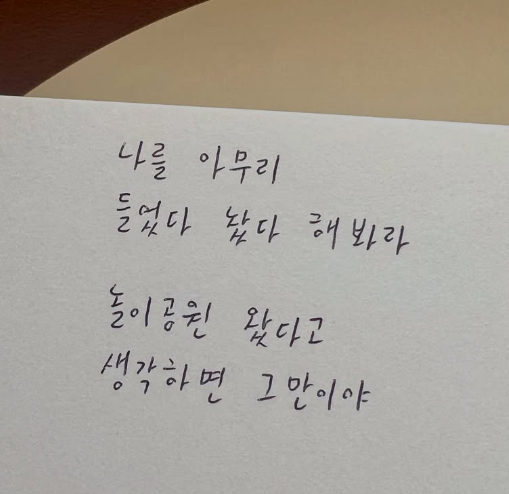 나를 아무리
들었다 놨다 해봐라
놀이공원 왔다고
생각하면 그만이야